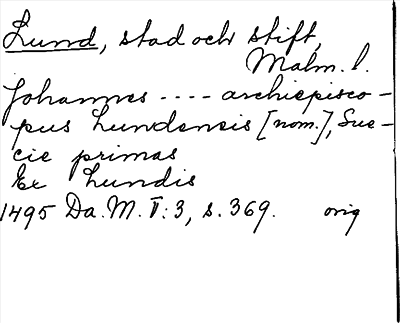 Lund, stad och stift,
Malm. l.
Johannes ---- archiepisco-
pus Lundensis [nom.], Sue-
cie primas
Ex Lundis
1495 Da. M. V:3, s. 369. orig